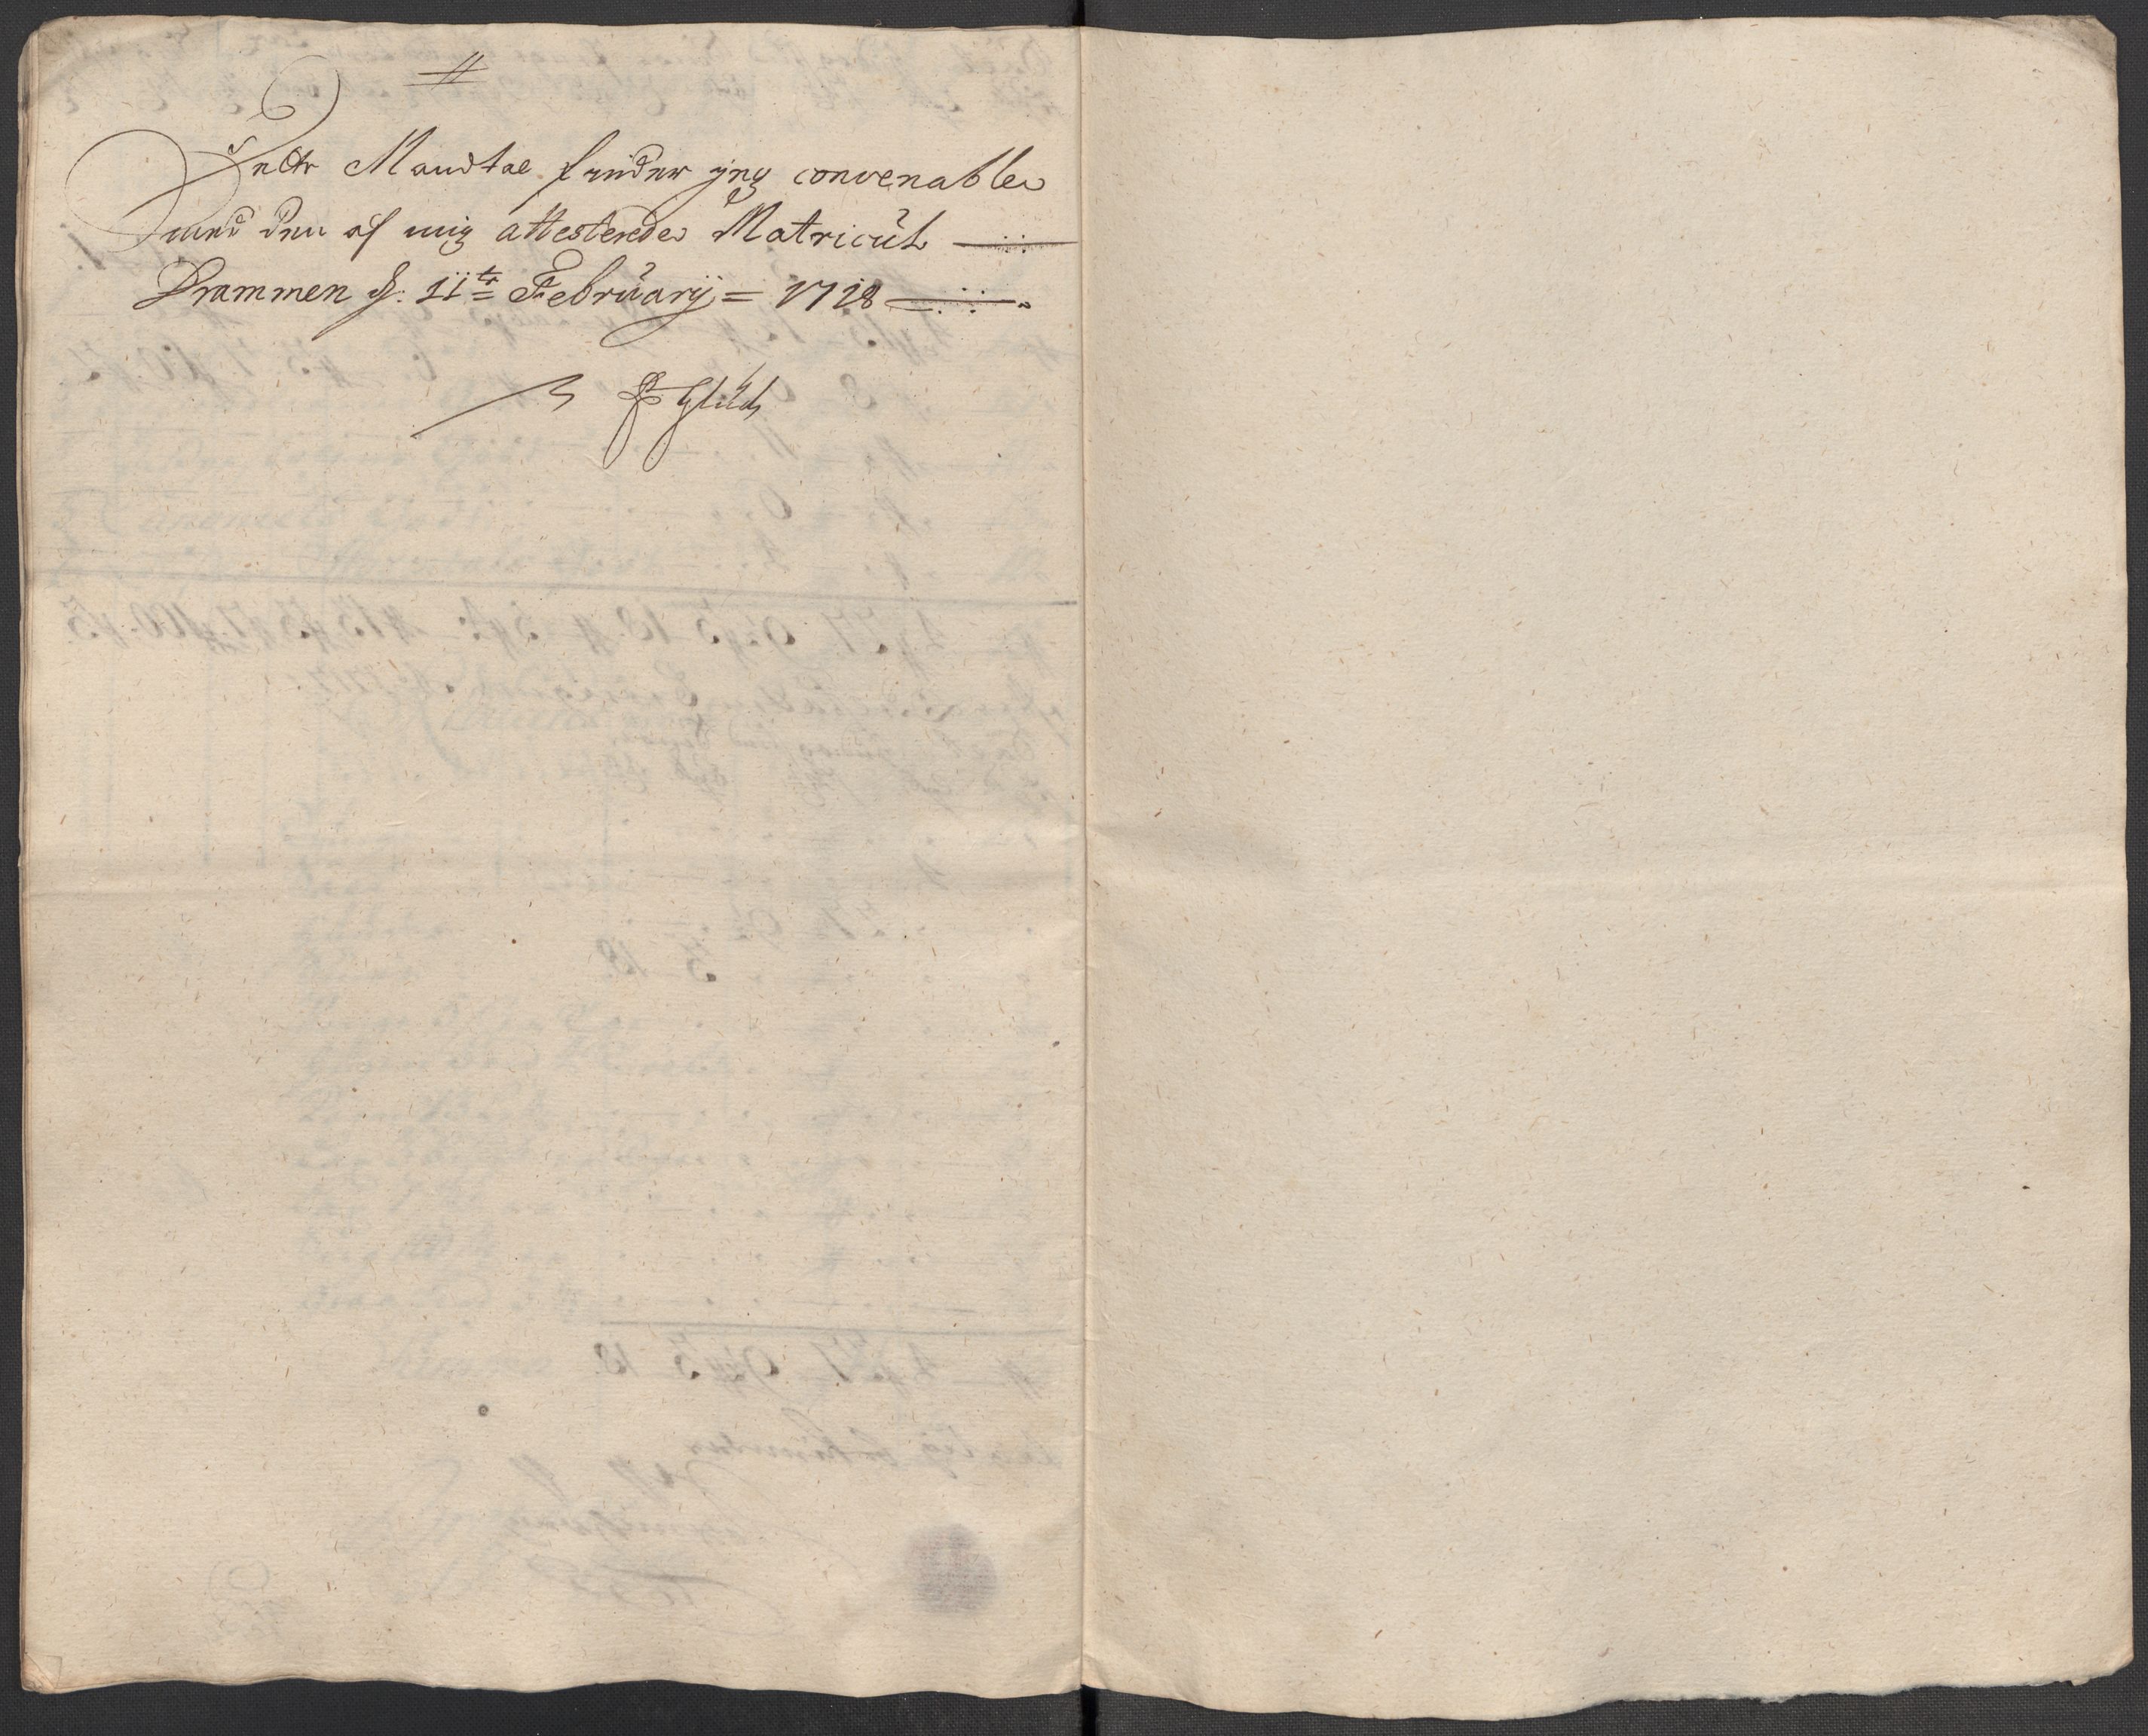 Dette Mandtal finder jeg convenable
med den af mig attesterede Matricul
Drammen d: 11te February = 1718
Glück